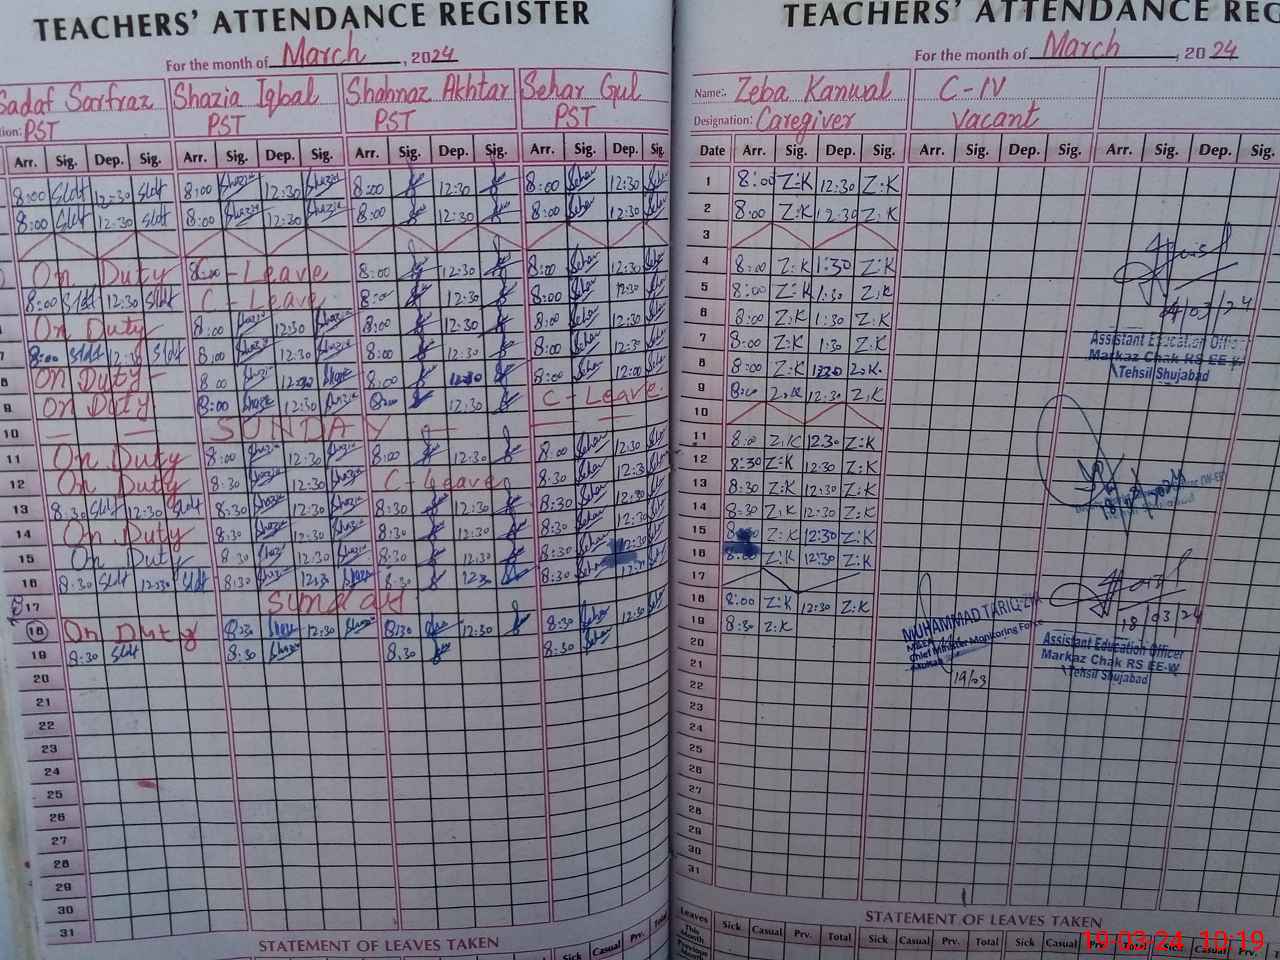 TEACHERS' ATTENDANCE REGISTER
For the month of March, 2024
Sadaf Sarfraz Shazia Iqbal Shahnaz Akhtar Sehar Gul
tion: PST PST PST PST
Arr. Sig. Dep. Sig. Arr. Sig. Dep. Sig. Arr. Sig. Dep. Sig. Arr. Sig. Dep. Sig.
8:00 Sldt 12:30 Sldt 8:00 Shazia 12:30 Shazia 8:00 12:30 8:00 Sehar 12:30 Sehar
8:00 Sldt 12:30 Sldt 8:00 Shazia 12:30 Shazia 8:00 12:30 8:00 Sehar 12:30 Sehar
On Duty C-Leave 8:00 12:30 8:00 Sehar 12:30 Sehar
8:00 Sldt 12:30 Sldt C-Leave 8:00 12:30 8:00 Sehar 12:30 Sehar
On Duty 8:00 Shazia 12:30 Shazia 8:00 12:30 8:00 Sehar 12:30 Sehar
7 8:00 Sldt 12:30 Sldt 8:00 Shazia 12:30 Shazia 8:00 12:30 8:00 Sehar 12:30 Sehar
8 On Duty 8:00 Shazia 12:30 8:00 12:30 8:00 Sehar 12:00 Sehar
9 On Duty 8:00 Shazia 12:30 Shazia 8:00 12:30 C-Leave.
10 SUNDAY
11 On Duty 8:00 Shazia 12:30 Shazia 8:00 12:30 8:00 Sehar 12:30 Sehar
12 On Duty 8:30 Shazia 12:30 Shazia C-Leave 8:30 Sehar 12:30 Sehar
13 8:30 Sldt 12:30 Sldt 8:30 Shazia 12:30 Shazia 8:30 12:30 8:30 Sehar 12:30 Sehar
14 On Duty 8:30 Shazia 12:30 Shazia 8:30 12:30 8:30 Sehar 12:30 Sehar
15 On Duty 8:30 Shazia 12:30 Shazia 8:30 12:30 8:30 Sehar 12:30 Sehar
16 8:30 Sldt 12:30 Sldt 8:30 Shazia 12:30 Shazia 8:30 12:30 8:30 Sehar Sehar
17 Sunday
18 On Duty 8:30 12:30 Shazia 8:30 12:30 8:30 Sehar 12:30 Sehar
19 8:30 Sldt 8:30 Shazia 8:30 8:30 Sehar
20
21
22
23
24
25
26
27
28
29
30
31
STATEMENT OF LEAVES TAKEN
Sick Casual Prv. Total
TEACHERS' ATTENDANCE REG
For the month of March, 2024
Name: Zeba Kanwal C-IV
Designation: Caregiver Vacant
Date Arr. Sig. Dep. Sig. Arr. Sig. Dep. Sig. Arr. Sig. Dep. Sig.
1 8:00 Z:K 12:30 Z:K
2 8:00 Z:K 12:30 Z:K
3
4 8:00 Z:K 1:30 Z:K
5 8:00 Z:K 1:30 Z:K
6 8:00 Z:K 1:30 Z:K
7 8:00 Z:K 1:30 Z:K
8 8:00 Z:K 1230 Z.K.
9 8:00 Z.K 12:30 Z:K
10
11 8:00 Z:K 12:30 Z:K
12 8:30 Z:K 12:30 Z:K
13 8:30 Z:K 12:30 Z:K
14 8:30 Z:K 12:30 Z:K
15 8:30 Z:K 12:30 Z:K
16 Z:K 12:30 Z:K
17
18 8:00 Z:K 12:30 Z:K
19 8:30 Z:K
20
21
22
23
24
25
26
27
28
29
30
31
/03/24
Assistant Education Officer
Markaz Chak RS EE-W
Tehsil Shujabad
MUHAMMAD TARIQ
MEA
Chief Minister Monitoring Force
19/03
18/03/24
Assistant Education Officer
Markaz Chak RS EE-W
Tehsil Shujabad
STATEMENT OF LEAVES TAKEN
Leaves This Month Sick Casual Prv. Total Sick Casual Prv. Total Sick Casual Prv. Total Sick Casual Prv.
19-03-24 10:19